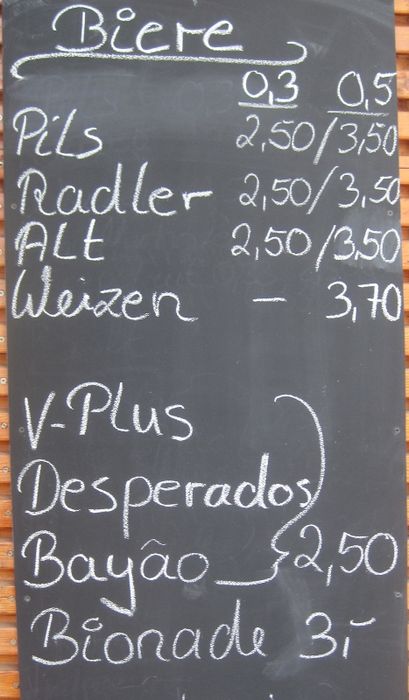 Biere
0,3 0,5
Pils 2,50/3,50
Radler 2,50/3,50
ALt 2,50/3,50
Weizen - 3,70
V-Plus
Desperados
Bayão 2,50
Bionade 3,-